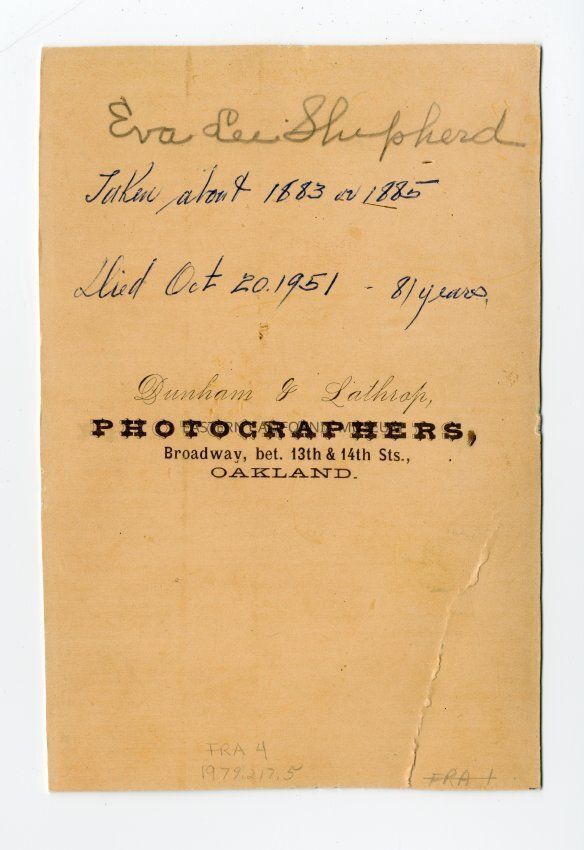 Eva Lee Shepherd
Taken about 1883 or 1885
Died Oct 20.1951 - 81 years.
Dunham & Lathrop,
EASTERN CALIFORNIA MUSEUM
PHOTOGRAPHERS,
Broadway, bet. 13th & 14th Sts.,
OAKLAND.
FRA 4
1979.217.5
FRA 1